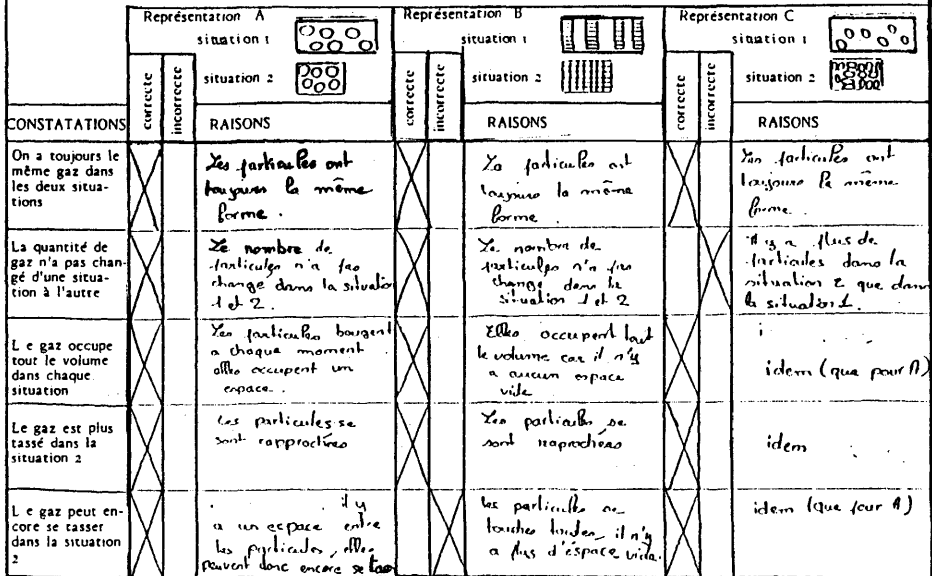 Représentation A
situation 1
situation 2
Représentation B
situation 1
situation 2
Représentation C
situation 1
situation 2
CONSTATATIONS
correcte
incorrecte
RAISONS
correcte
incorrecte
RAISONS
correcte
incorrecte
RAISONS
On a toujours le
même gaz dans
les deux situa-
tions
Les particules ont
toujours la même
forme.
La particules ont
toujours la même
forme.
Les particules ont
toujours la même
forme.
La quantité de
gaz n'a pas chan-
gé d'une situa-
tion à l'autre
Le nombre de
particules n'a pas
change dans la situation
1 et 2
Le nombre de
particules n'a pas
change dans la
situation 1 et 2
il y a plus de
particules dans la
situation 2 que dans
la situation 1.
L e gaz occupe
tout le volume
dans chaque
situation
Les particules bougent
a chaque moment
elles occupent un
espace.
Elles occupent tout
le volume car il n'y
a aucun espace
vide
idem (que pour A)
Le gaz est plus
tassé dans la
situation 2
Les particules se
sont rapprochées
Les particules se
sont raprochées
idem
L e gaz peut en-
core se tasser
dans la situation
2
il y
a un espace entre
les particules, elles
peuvent donc encore se
les particules se
touches toutes, il n'y
a plus d'éspace vide.
idem (que pour A)